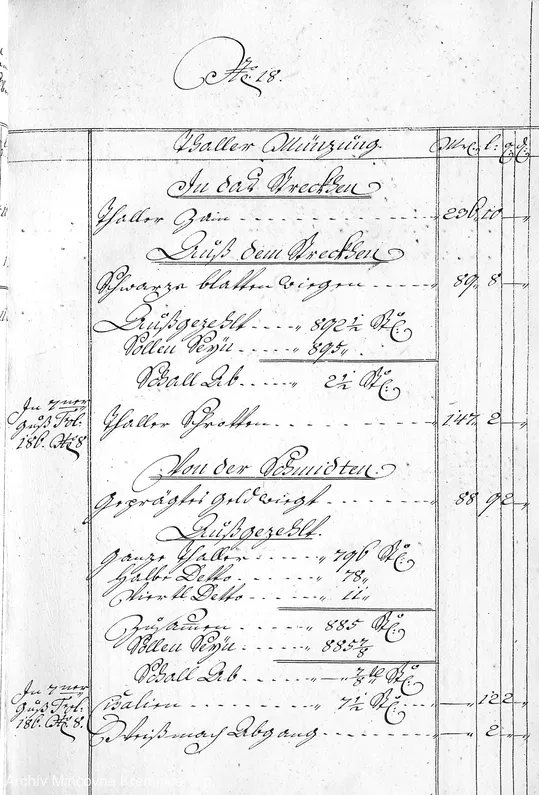 No. 18.
Thaller Münzung. Mr. l: q d
In das Streckhen
Thaller Zain 236 10
Auß dem Streckhen
Schwarze blatten wiegen 89 8
Außgezehlt 892½ St:
Sollen Seÿn 895
Schall Ab 2½ St:
In 7ner
Guß Fol:
186. No 8
Thaller Schrotten 147 2
Von der Schmidten
Geprägtes Geld wiegt 88
Außgezehlt.
Ganze Thaller 796 St:
Halbe Detto 78
Viertl Detto 11
Zusamen 885 St:
Sollen Seÿn 885⅞
Schall Ab ⅞ St:
In 7ner
Guß Fol:
186. No 8.
Cisalien 7½ St: 12 2
Weißmach Abgang 2
Archiv Mincovne Kremnica